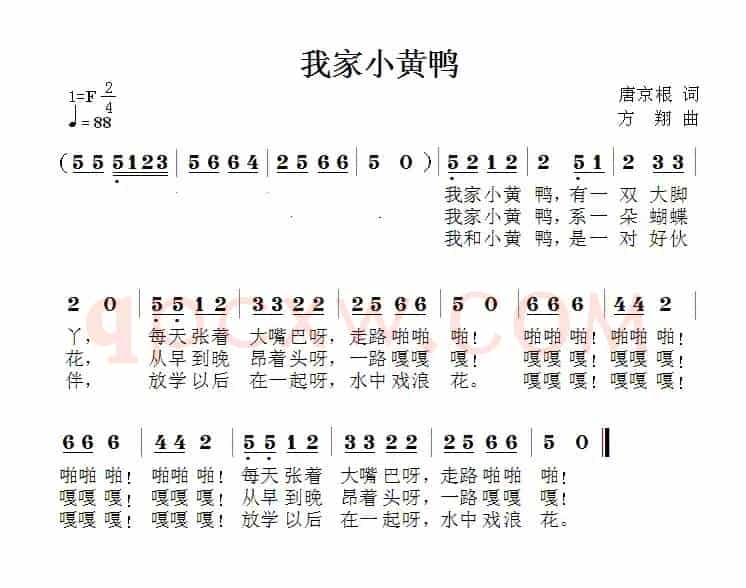 我家小黄鸭
1=F 2/4
♩=88
唐京根 词
方 翔 曲
(5 5 5123 | 5 6 6 4 | 2 5 6 6 | 5 0 ) | 5 2 1 2 | 2 5 1 | 2 3 3 |
我家小黄 鸭,有一 双 大脚
我家小黄 鸭,系一 朵 蝴蝶
我和小黄 鸭,是一 对 好伙
2 0 | 5 5 1 2 | 3 3 2 2 | 2 5 6 6 | 5 0 | 6 6 6 | 4 4 2 |
qdcxw.com
丫, 每天张着 大嘴巴呀,走路啪啪 啪! 啪啪 啪! 啪啪 啪!
花, 从早到晚 昂着头呀,一路嘎嘎 嘎! 嘎嘎 嘎! 嘎嘎 嘎!
伴, 放学以后 在一起呀,水中戏浪 花。 嘎嘎 嘎! 嘎嘎 嘎!
6 6 6 | 4 4 2 | 5 5 1 2 | 3 3 2 2 | 2 5 6 6 | 5 0 ‖
啪啪 啪! 啪啪 啪! 每天张着 大嘴巴呀,走路啪啪 啪!
嘎嘎 嘎! 嘎嘎 嘎! 从早到晚 昂着头呀,一路嘎嘎 嘎!
嘎嘎 嘎! 嘎嘎 嘎! 放学以后 在一起呀,水中戏浪 花。